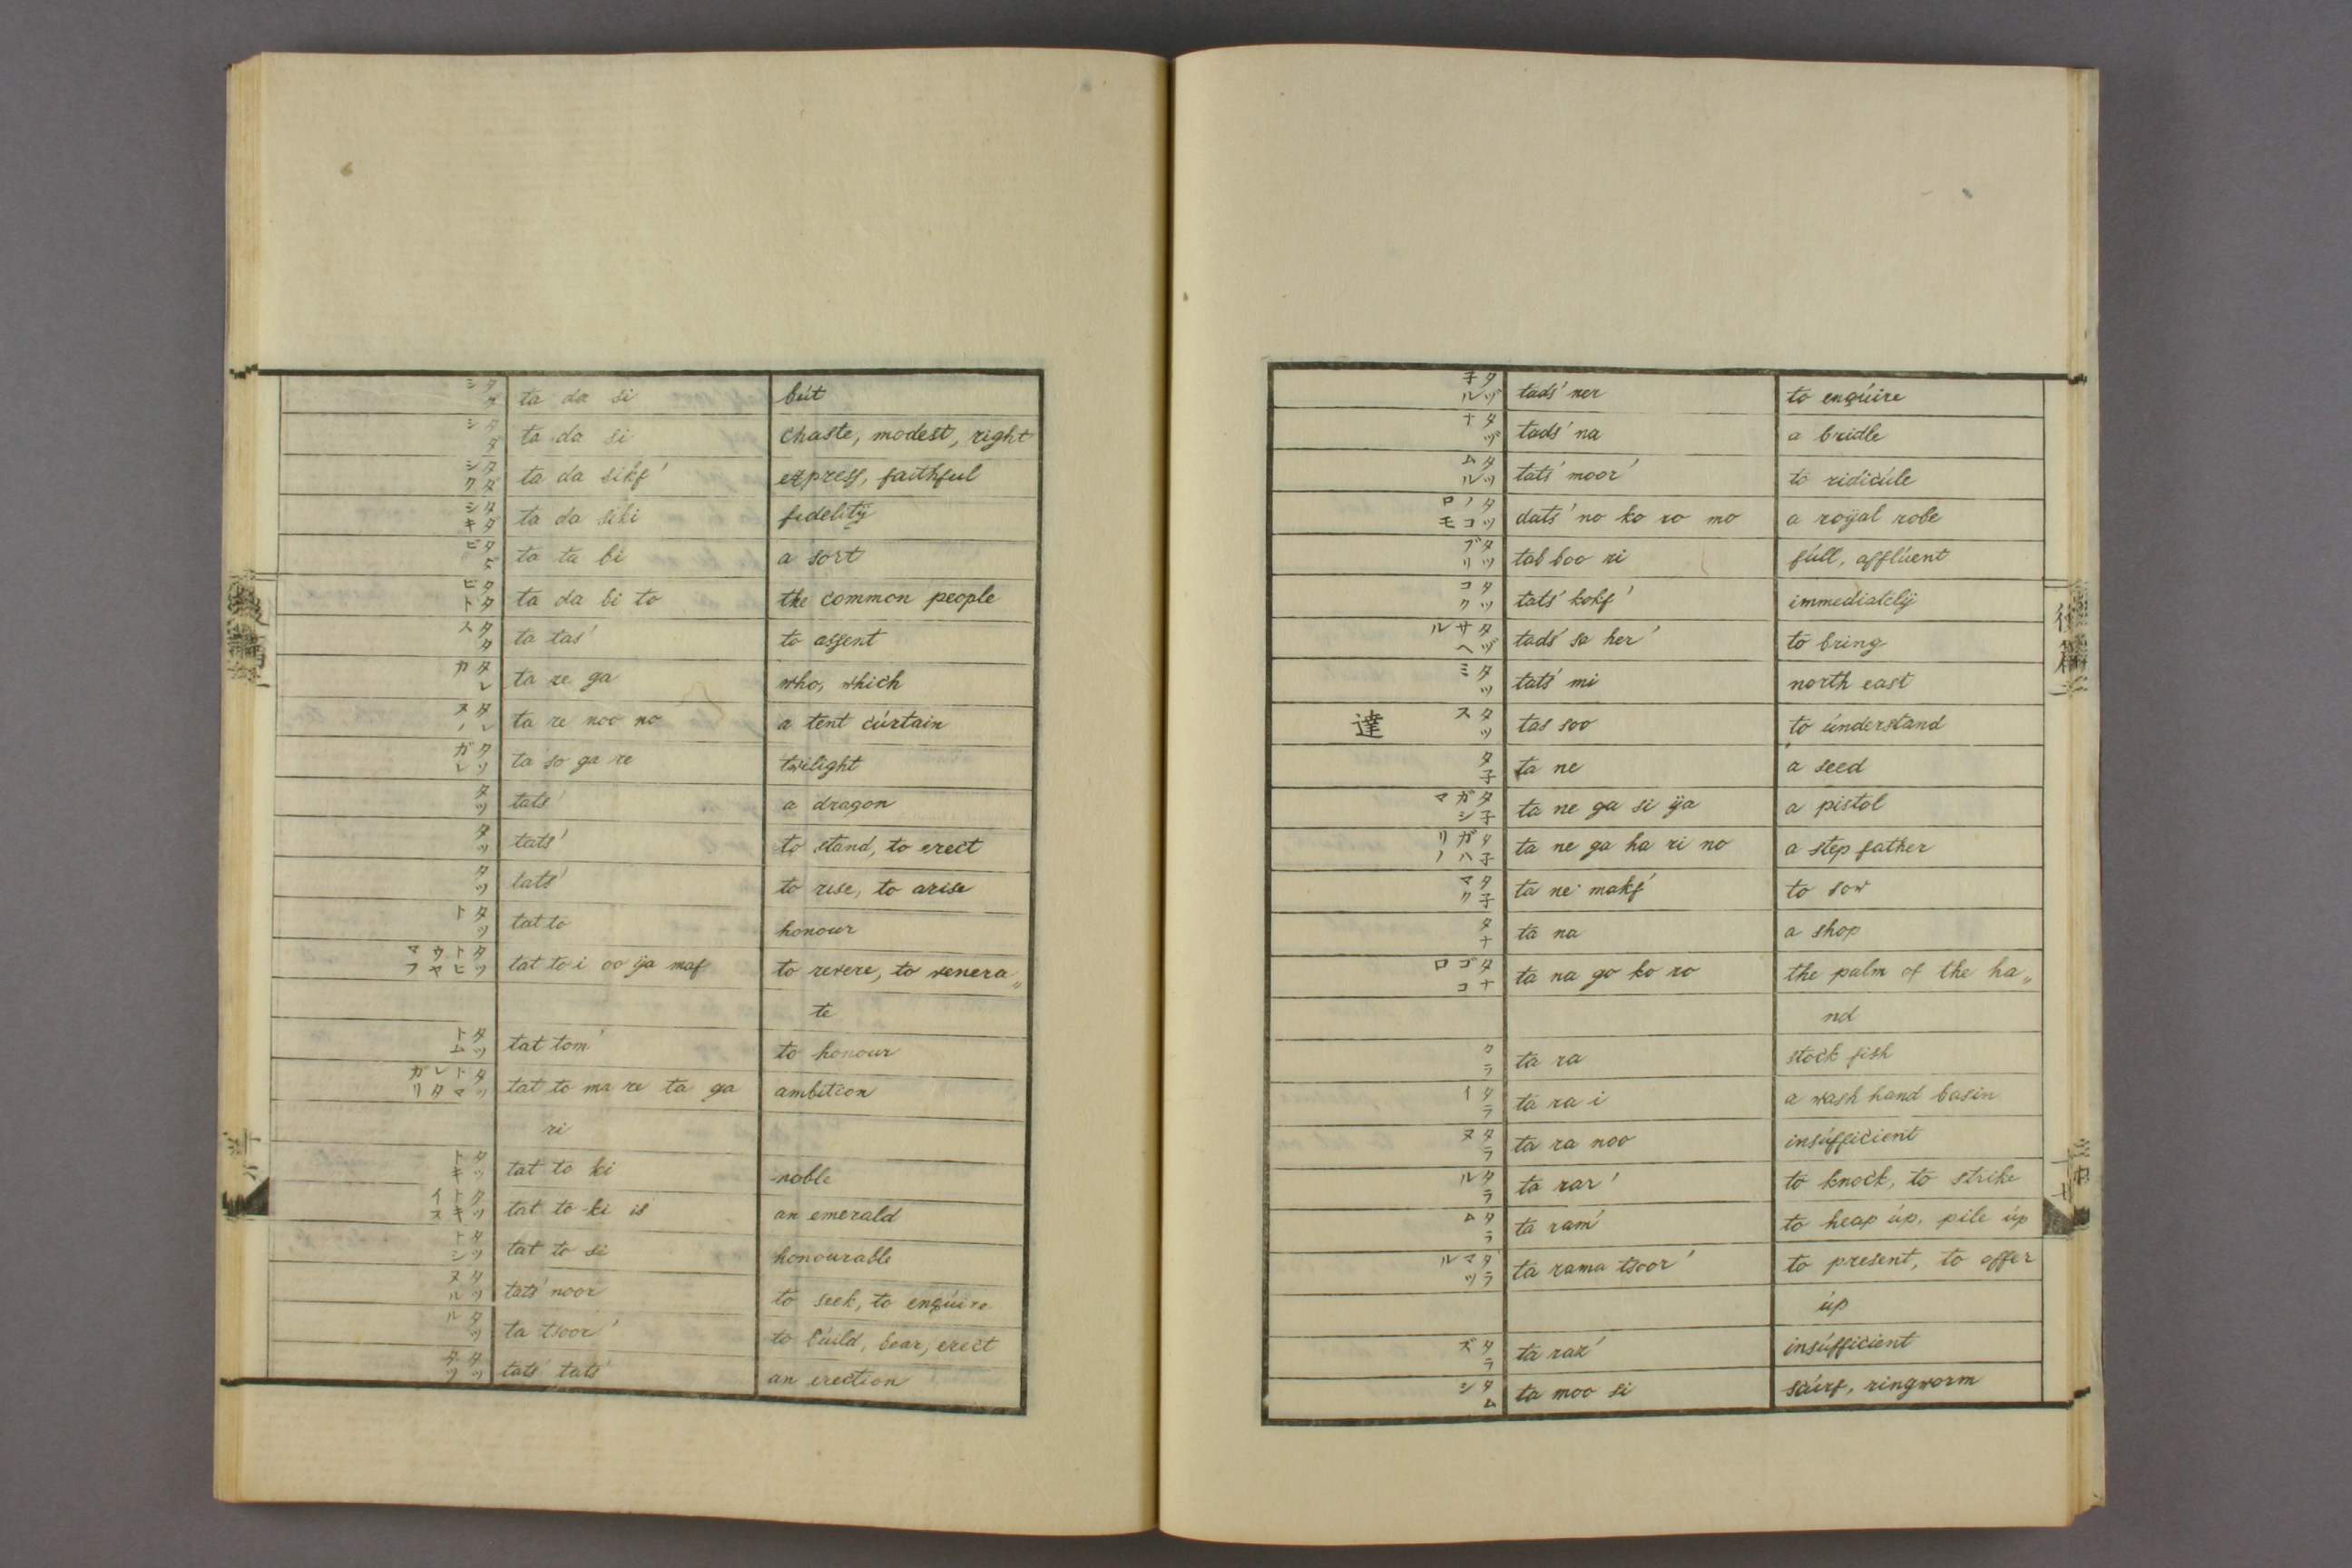 タタシ ta da si bút
タダシ ta da si Chaste, modest, right
タダシク ta da sikf' express, faithful
タダシキ ta da siki fidelitÿ
ta ta bi a sort
タタビト ta da bi to the common people
タタス ta tas' to assent
タレカ ta re ga who, which
タレヌノ ta re noo no a tent cúrtain
タソガレ ta so ga re twilight
タツ tats' a dragon
タツ tats' to stand, to erect
タツ tats' to rise, to arise
タツト tat to honour
タツトヒウヤマフ tat to i oo ÿa maf to revere, to venera„
te
タツトム tat tom' to honour
タツトマレタガリ tat to ma re ta ga ambition
ri
タツトキ tat to ki noble
タツトキイス tat to ki is an emerald
タツトシ tat to si honourable
タツヌル tats' noor to seek, to enqúire
タツル ta tsoor' to búild, bear, erect
タツタツ tats' tats' an erection
タヅ子ル tads' ner to enqúire
タヅナ tads' na a bridle
タツムル tats' moor' to ridicúle
タツノコロモ dats' no ko ro mo a roÿal robe
タツブリ tab boo ri fúll, afflúent
タツコク tats' kokf' immediatelÿ
タヅサヘル tads' sa her' to bring
タツミ tats' mi north east
達 タツス tas soo to únderstand
タ子 ta ne a seed
タ子ガシマ ta ne ga si ÿa a pistol
タ子ガハリノ ta ne ga ha ri no a step father
タ子マク ta ne makf' to sow
タナ ta na a shop
タナゴコロ ta na go ko ro the palm of the ha„
nd
タラ ta ra stock fish
タライ ta ra i a wash hand basin
タラヌ ta ra noo insúfficient
タラル ta rar' to knock, to strike
タラム ta ram' to heap úp, pile úp
タラマツル ta rama tsoor' to present, to offer
úp
タラズ ta raz' insúfficient
タムシ ta moo si scúrf, ringworm